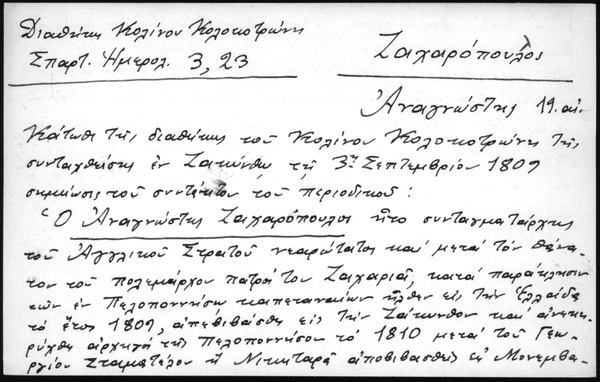 Διαθήκη Κολίνου Κολοκοτρώνη
Σπαρτ. Ημερολ. 3, 23
Ζαχαρόπουλος
Ἀναγνώστης 19. αἰ.
Κάτωθι τῆς διαθήκης τοῦ Κολίνου Κολοκοτρώνη τῆς
συνταχθείσης ἐν Ζακύνθῳ τῇ 3ῃ Σεπτεμβρίου 1809
σημείωσις τοῦ συντάκτου τοῦ περιοδικοῦ:
Ὁ Ἀναγνώστης Ζαχαρόπουλος ἦτο συνταγματάρχης
τοῦ Ἀγγλικοῦ Στρατοῦ νεαρώτατος καὶ μετὰ τὸν θάνα-
τον τοῦ πολεμάρχου πατρός του Ζαχαριᾶ, κατὰ παράκλησιν
τῶν ἐν Πελοποννήσῳ καπεταναίων ἦλθεν εἰς τὴν Ἑλλάδα
τὸ ἔτος 1809, ἀπεβιβάσθη εἰς τὴν Ζάκυνθον καὶ ἀνεκη-
ρύχθη ἀρχηγὸς τῆς Πελοποννήσου τὸ 1810 μετὰ τοῦ Γεω-
ργίου Σταματέλου ἢ Νικηταρᾶ ἀποβιβασθεὶς εἰς Μονεμβα-